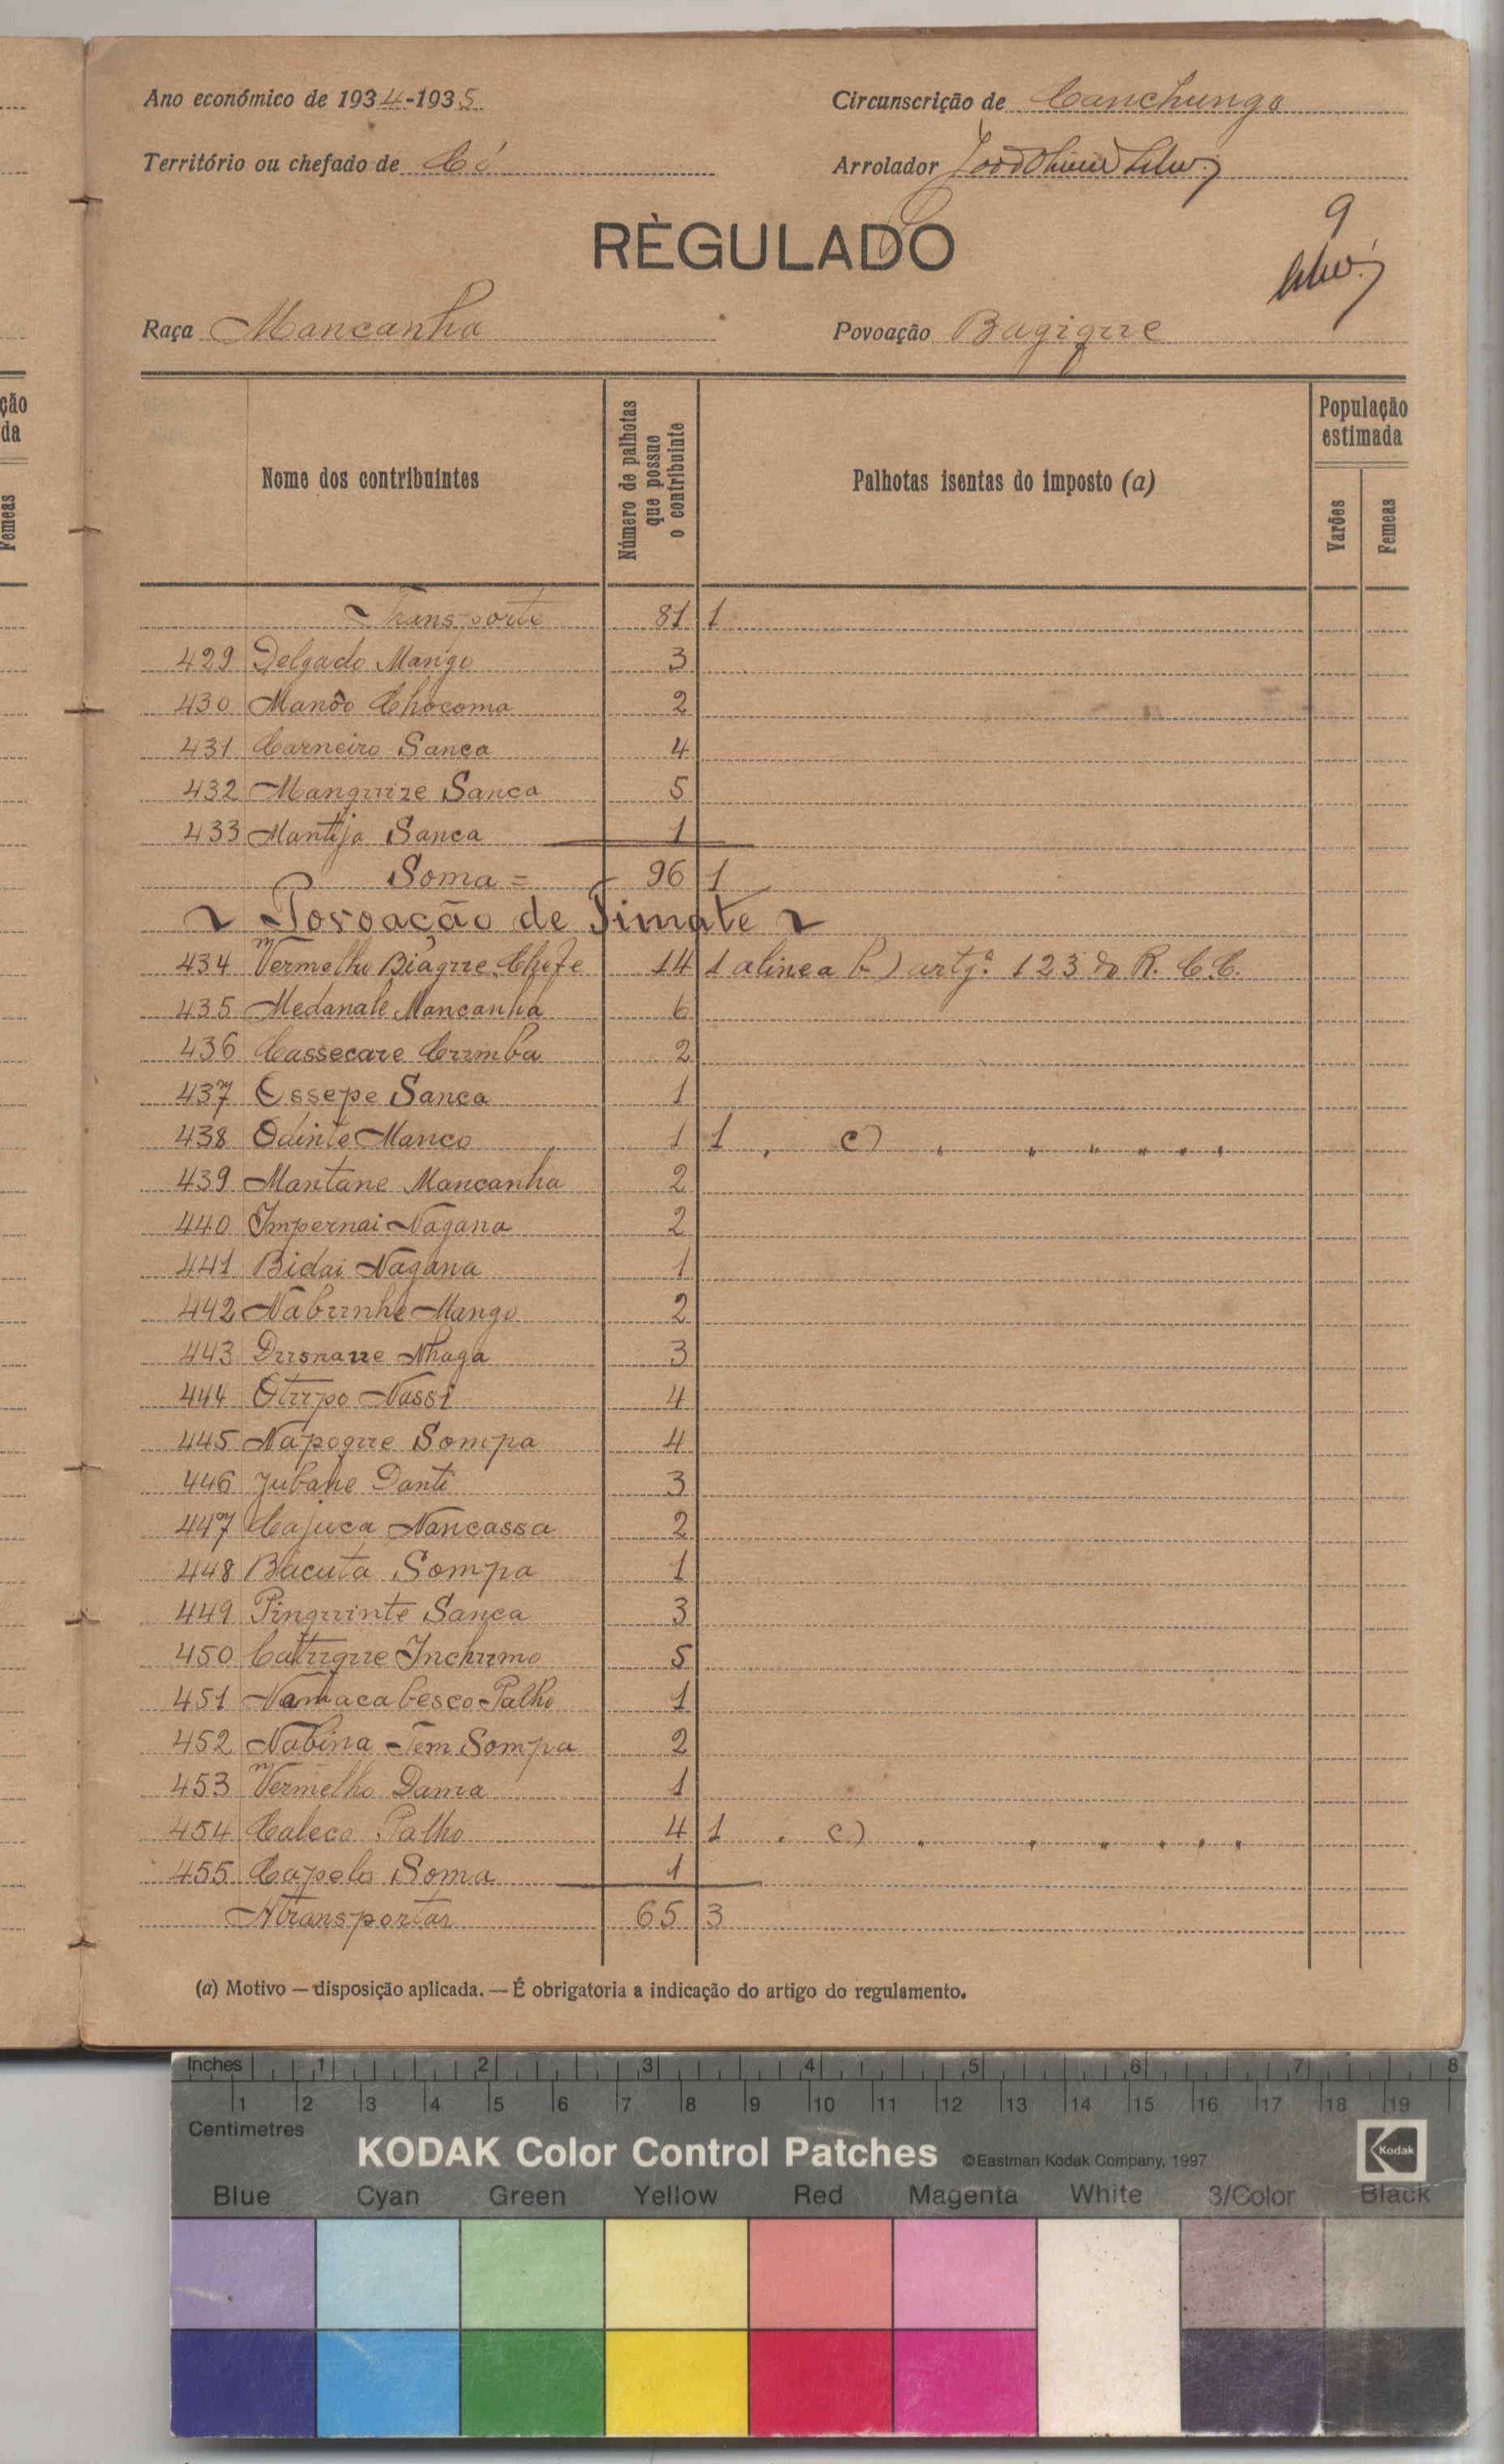 Ano económico de 1934-1935
Circunscrição de Canchungo
Território ou chefado de Có
Arrolador
RÈGULADO
9
Raça Mancanha
Povoação Bugigue
ção
da
Femeas
Nome dos contribuintes
Número de palhotas que possue o contribuinte
Palhotas isentas do imposto (a)
População estimada
Varões
Femeas
Transporte 81 1
429 Delgado Mango 3
430 Manôo Chocoma 2
431 Carneiro Sanca 4
432 Manguize Sanca 5
433 Mantija Sanca 1
Soma = 96 1
Povoação de Timate
434 Vermelho Biague, Chefe 14 1 alinea b) artgº 123 do R. C. C.
435 Medanale Mancanha 6
436 Cassecare Cumba 2
437 Essepe Sanca 1
438 Odinte Manco 1 1 " c) " " " " " "
439 Mantane Mancanha 2
440 Impernai Nagana 2
441 Bidai Nagana 1
442 Nabunhe Mango 2
443 Dusnaue Nhaga 3
444 Otupo Nassi 4
445 Napogue Sompa 4
446 Jubane Danti 3
447 Cajuca Nancassa 2
448 Bacuta Sompa 1
449 Pinguinte Sanca 3
450 Catugue Inchumo 5
451 Namaca besco Palho 1
452 Nabina Tem Sompa 2
453 Vermelho Dama 1
454 Caleco Palho 4 1 " c) " " " " " "
455 Capelo Soma 1
A transportar 65 3
(a) Motivo — disposição aplicada. — É obrigatoria a indicação do artigo do regulamento.
Inches 1 2 3 4 5 6 7 8
1 2 3 4 5 6 7 8 9 10 11 12 13 14 15 16 17 18 19
Centimetres
KODAK Color Control Patches ©Eastman Kodak Company, 1997 Kodak
Blue Cyan Green Yellow Red Magenta White 3/Color Black